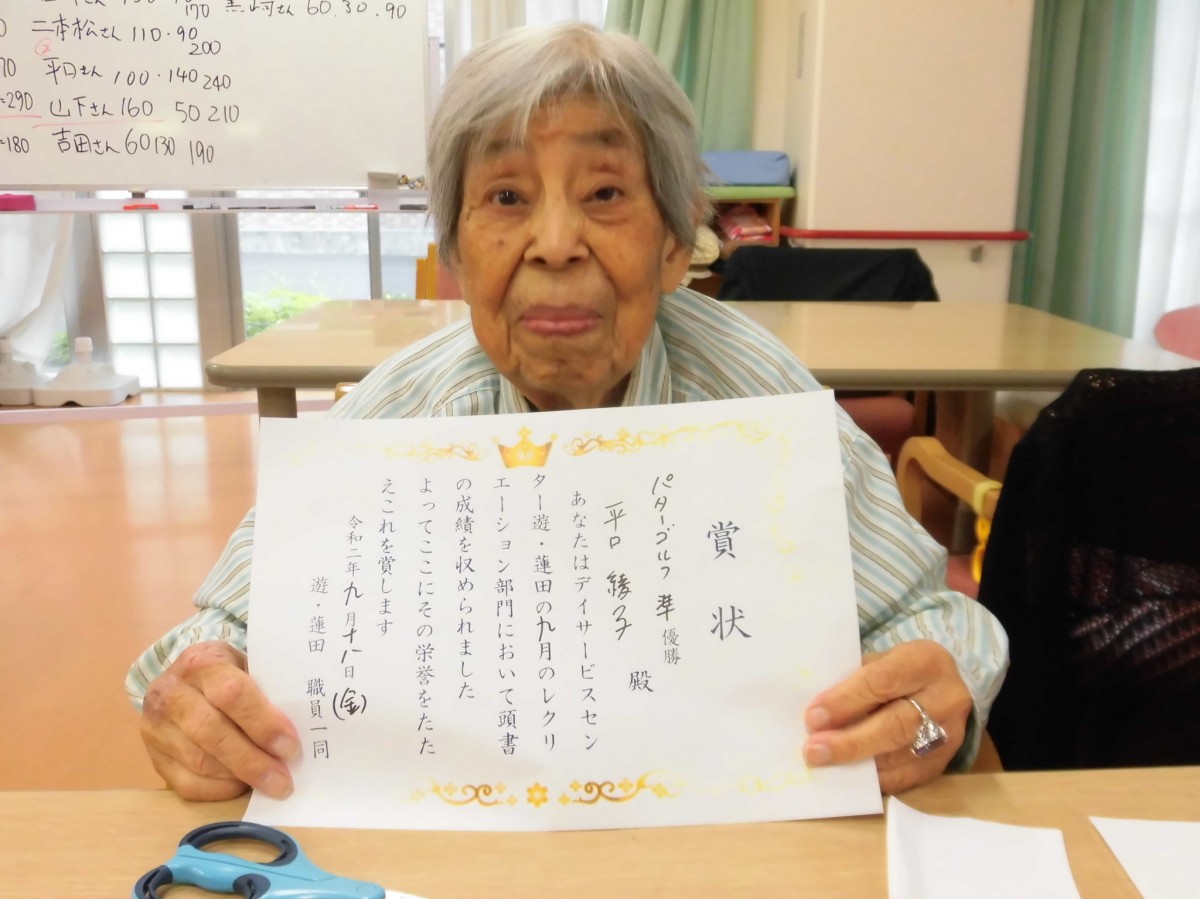 170 黒崎さん 60.30.90
二本松さん 110・90
200
70 平口さん 100・140 240
=290 山下さん 160 50 210
=180 吉田さん 60 130 190
賞状
パターゴルフ 準優勝
平口 綾子 殿
あなたはデイサービスセン
ター遊・蓮田の九月のレクリ
エーション部門において頭書
の成績を収められました
よってここにその栄誉をたた
えこれを賞します
令和二年九月十八日(金)
遊・蓮田 職員一同